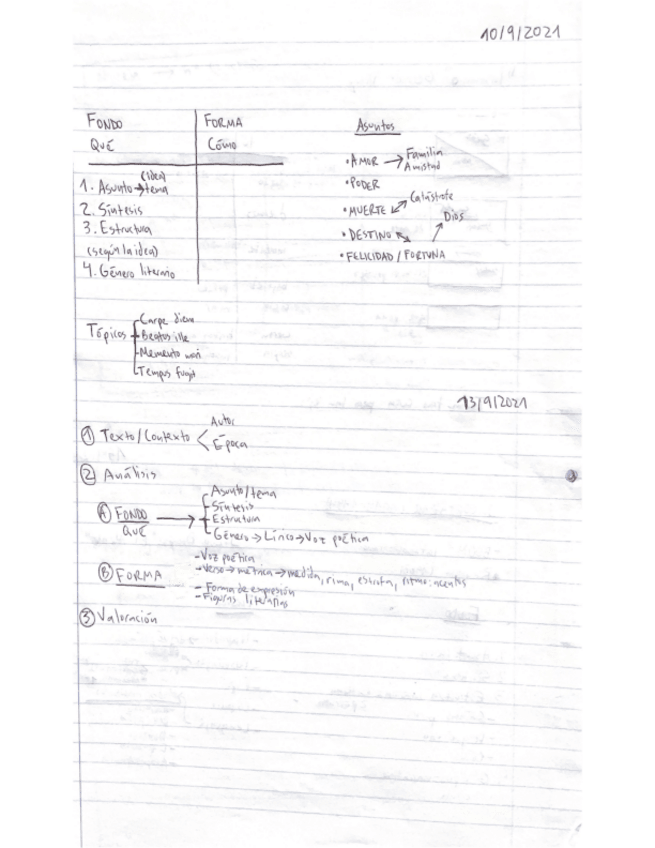 10/9/2021
FONDO
QUÉ
FORMA
CÓMO
(idea)
1. Asunto → tema
2. Síntesis
3. Estructura
(según la idea)
4. Género literario
Asuntos
• AMOR → Familia
Amistad
• PODER
• MUERTE ↔ Catástrofe
• DESTINO ↔ Dios
• FELICIDAD / FORTUNA
Tópicos
Carpe diem
Beatus ille
Memento mori
Tempus fugit
13/9/2021
① Texto/Contexto < Autor
Época
② Análisis
Ⓐ FONDO →
QUÉ
Asunto/tema
Síntesis
Estructura
Género → Lírico → Voz poética
Ⓑ FORMA
- Voz poética
- Verso → métrica → medida, rima, estrofa, ritmo: acentos
- Forma de expresión
- Figuras literarias
③ Valoración